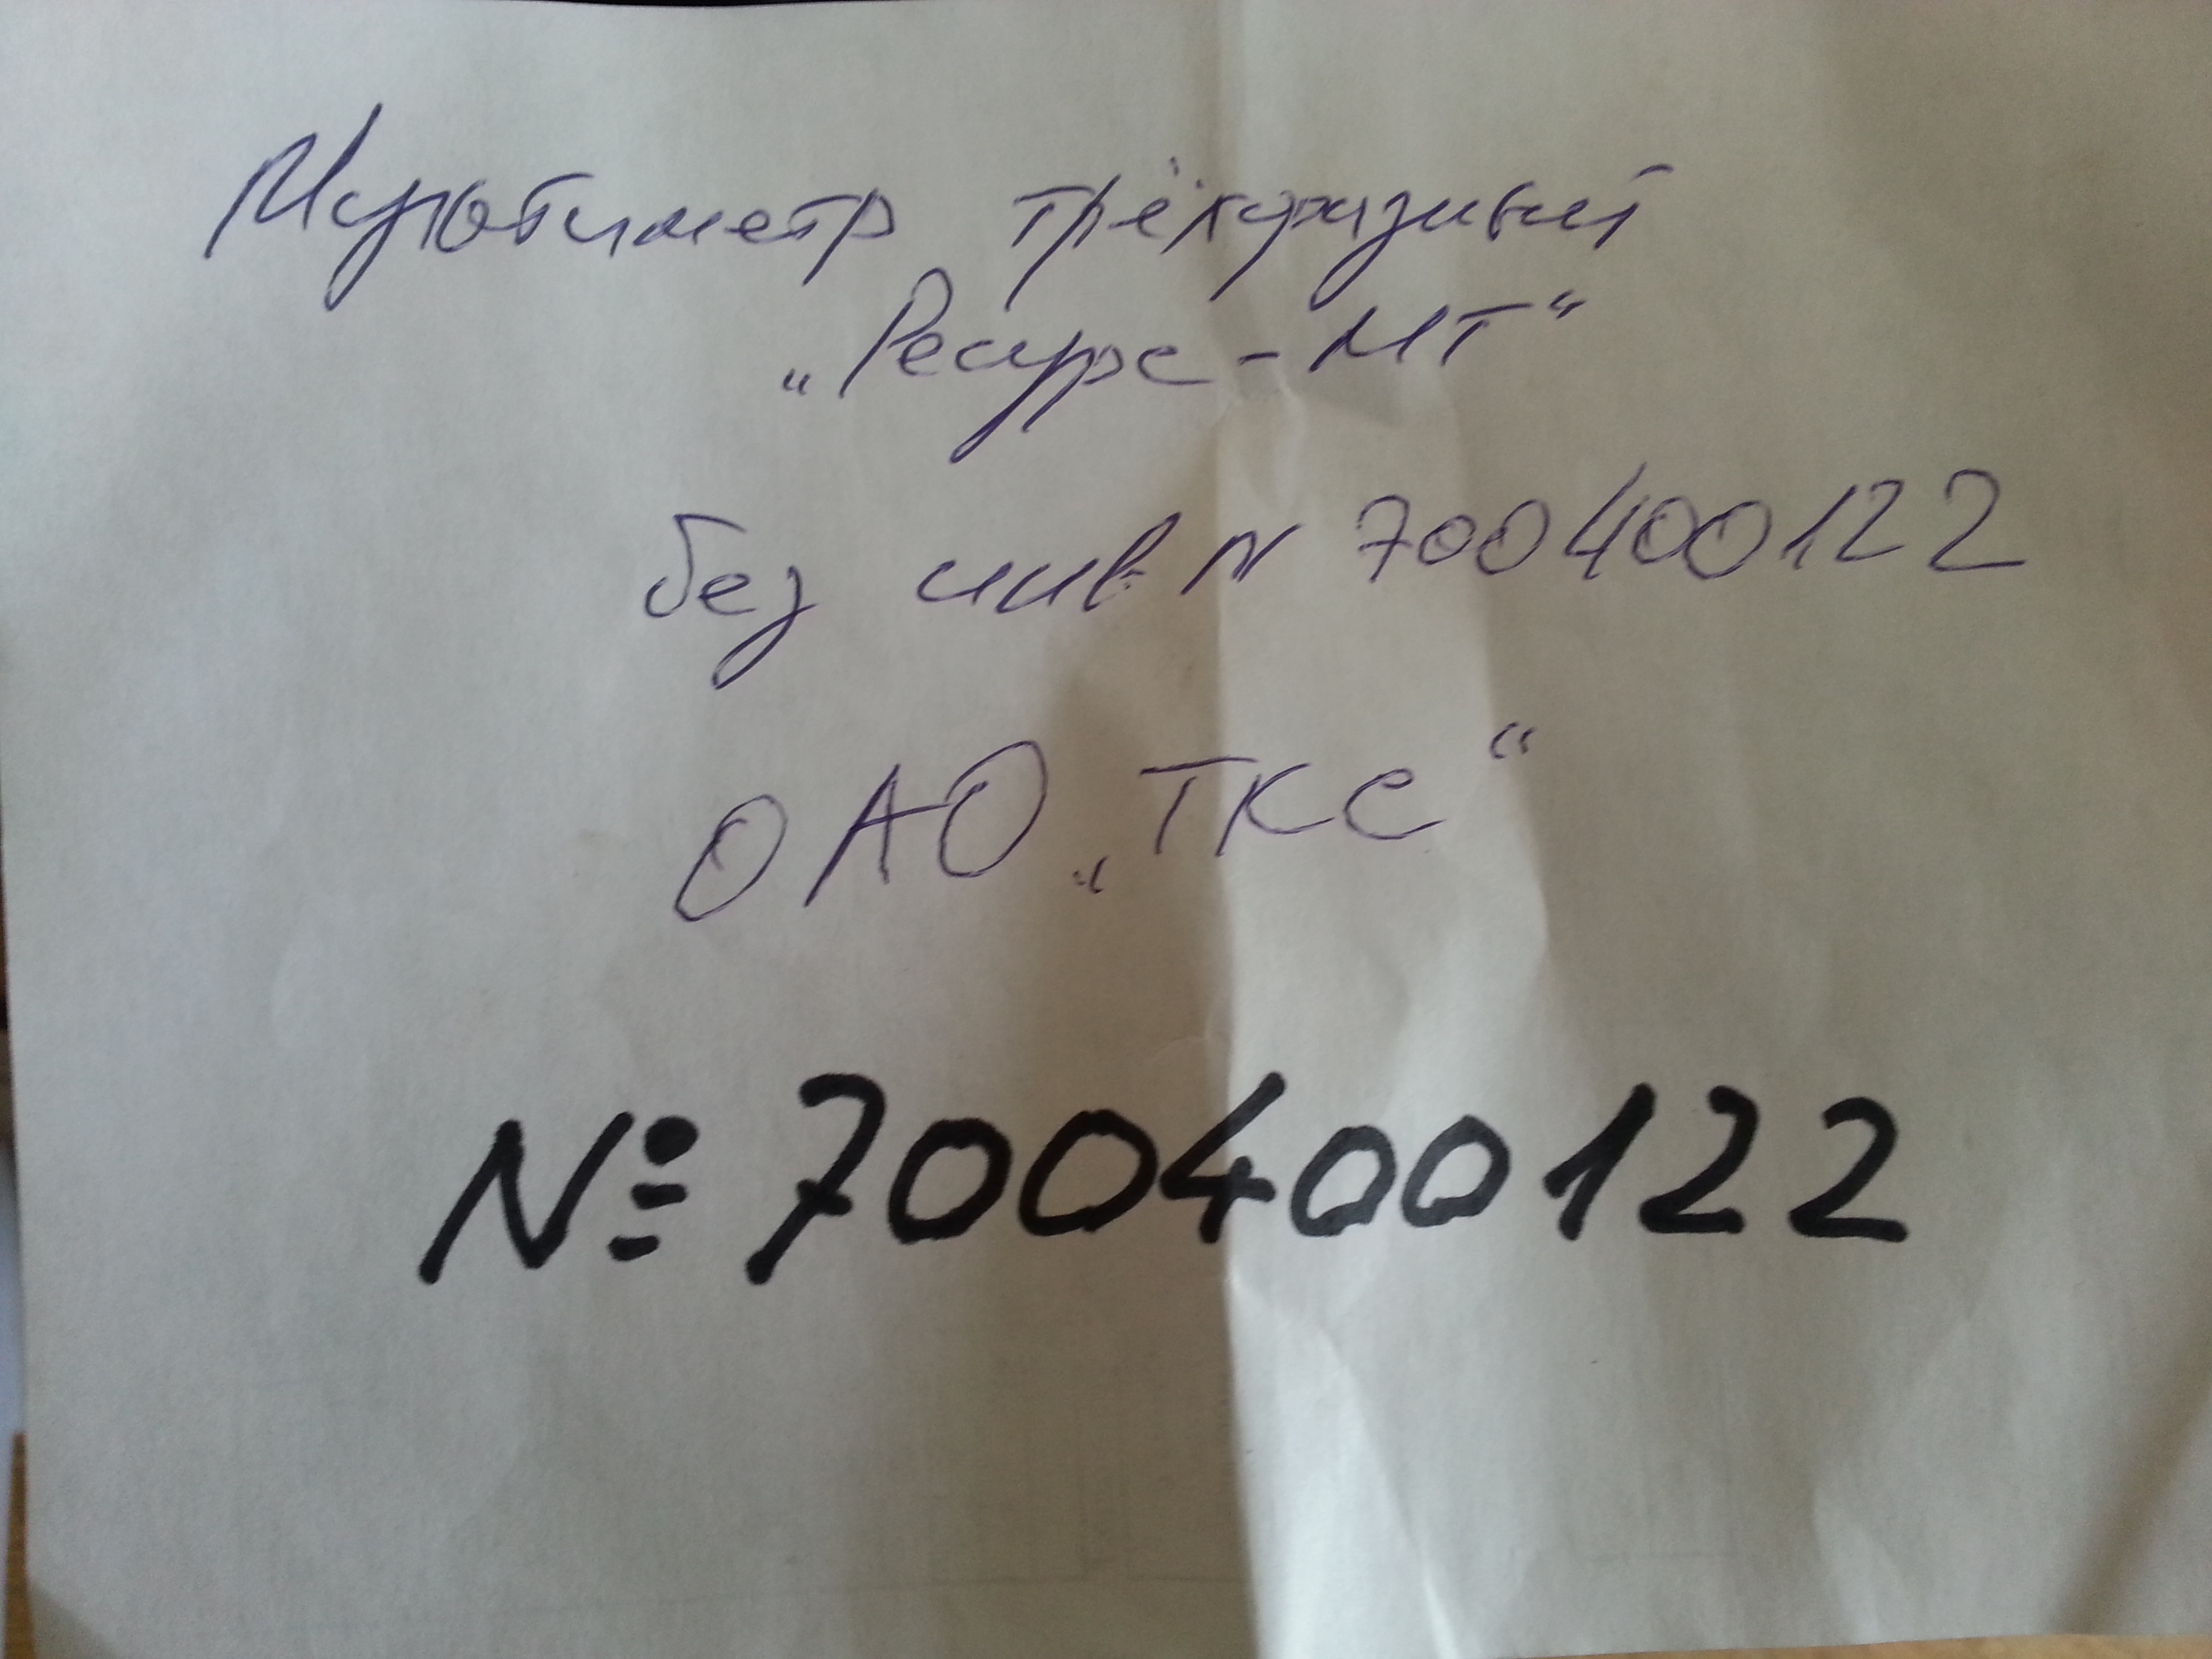 Мультиметр трёхфазный
„Ресурс-МТ“
без инв. N 700400122
ОАО „ТКС“
№ 700400122